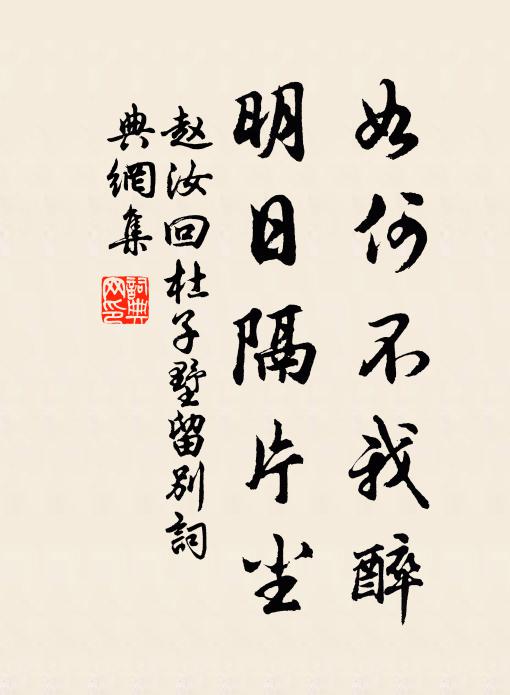 如何不我醉
明日隔片尘
赵汝回杜子墅留别詞
典網集
詞典
网印